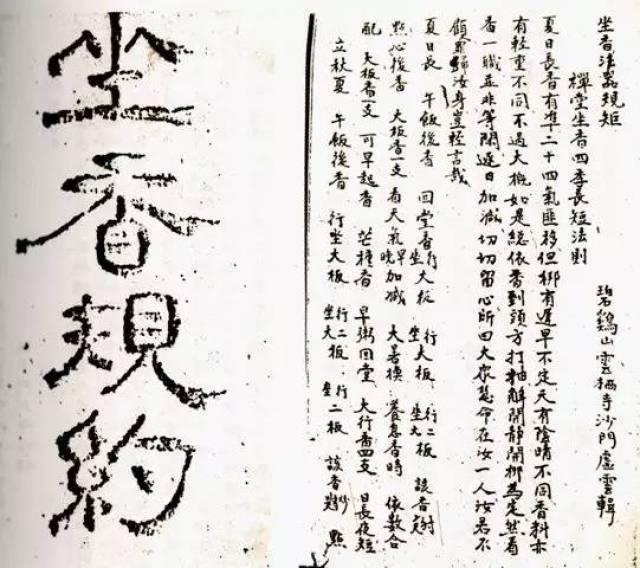 坐香規約
坐香法器規矩
碧鷄山雲栖寺沙門虛雲輯
禪堂坐香四季長短法則
夏日長香有準二十四氣匪移但梆有遲早不定天有陰晴不同香料亦
有輕重不同不過大概如是總依香到頭方打抽解開靜開梆為定然看
香一職並非等閒遲日加減切切留心所因大眾慧命在汝一人汝若不
顧罪歸汝身豈輕言哉
夏日長 午飯後香 回堂香行坐大板 行大板 坐 行二板 坐 該香
點心後香 大板香一支 看天氣早晚加減 大暑換 養息香時 依數合
配 大板香一支 可早起香 芒種香 早粥回堂 大行香四支 日長夜短
立秋夏 午飯後香 行坐大板 行二板 坐大板 行二板 坐 該香 點